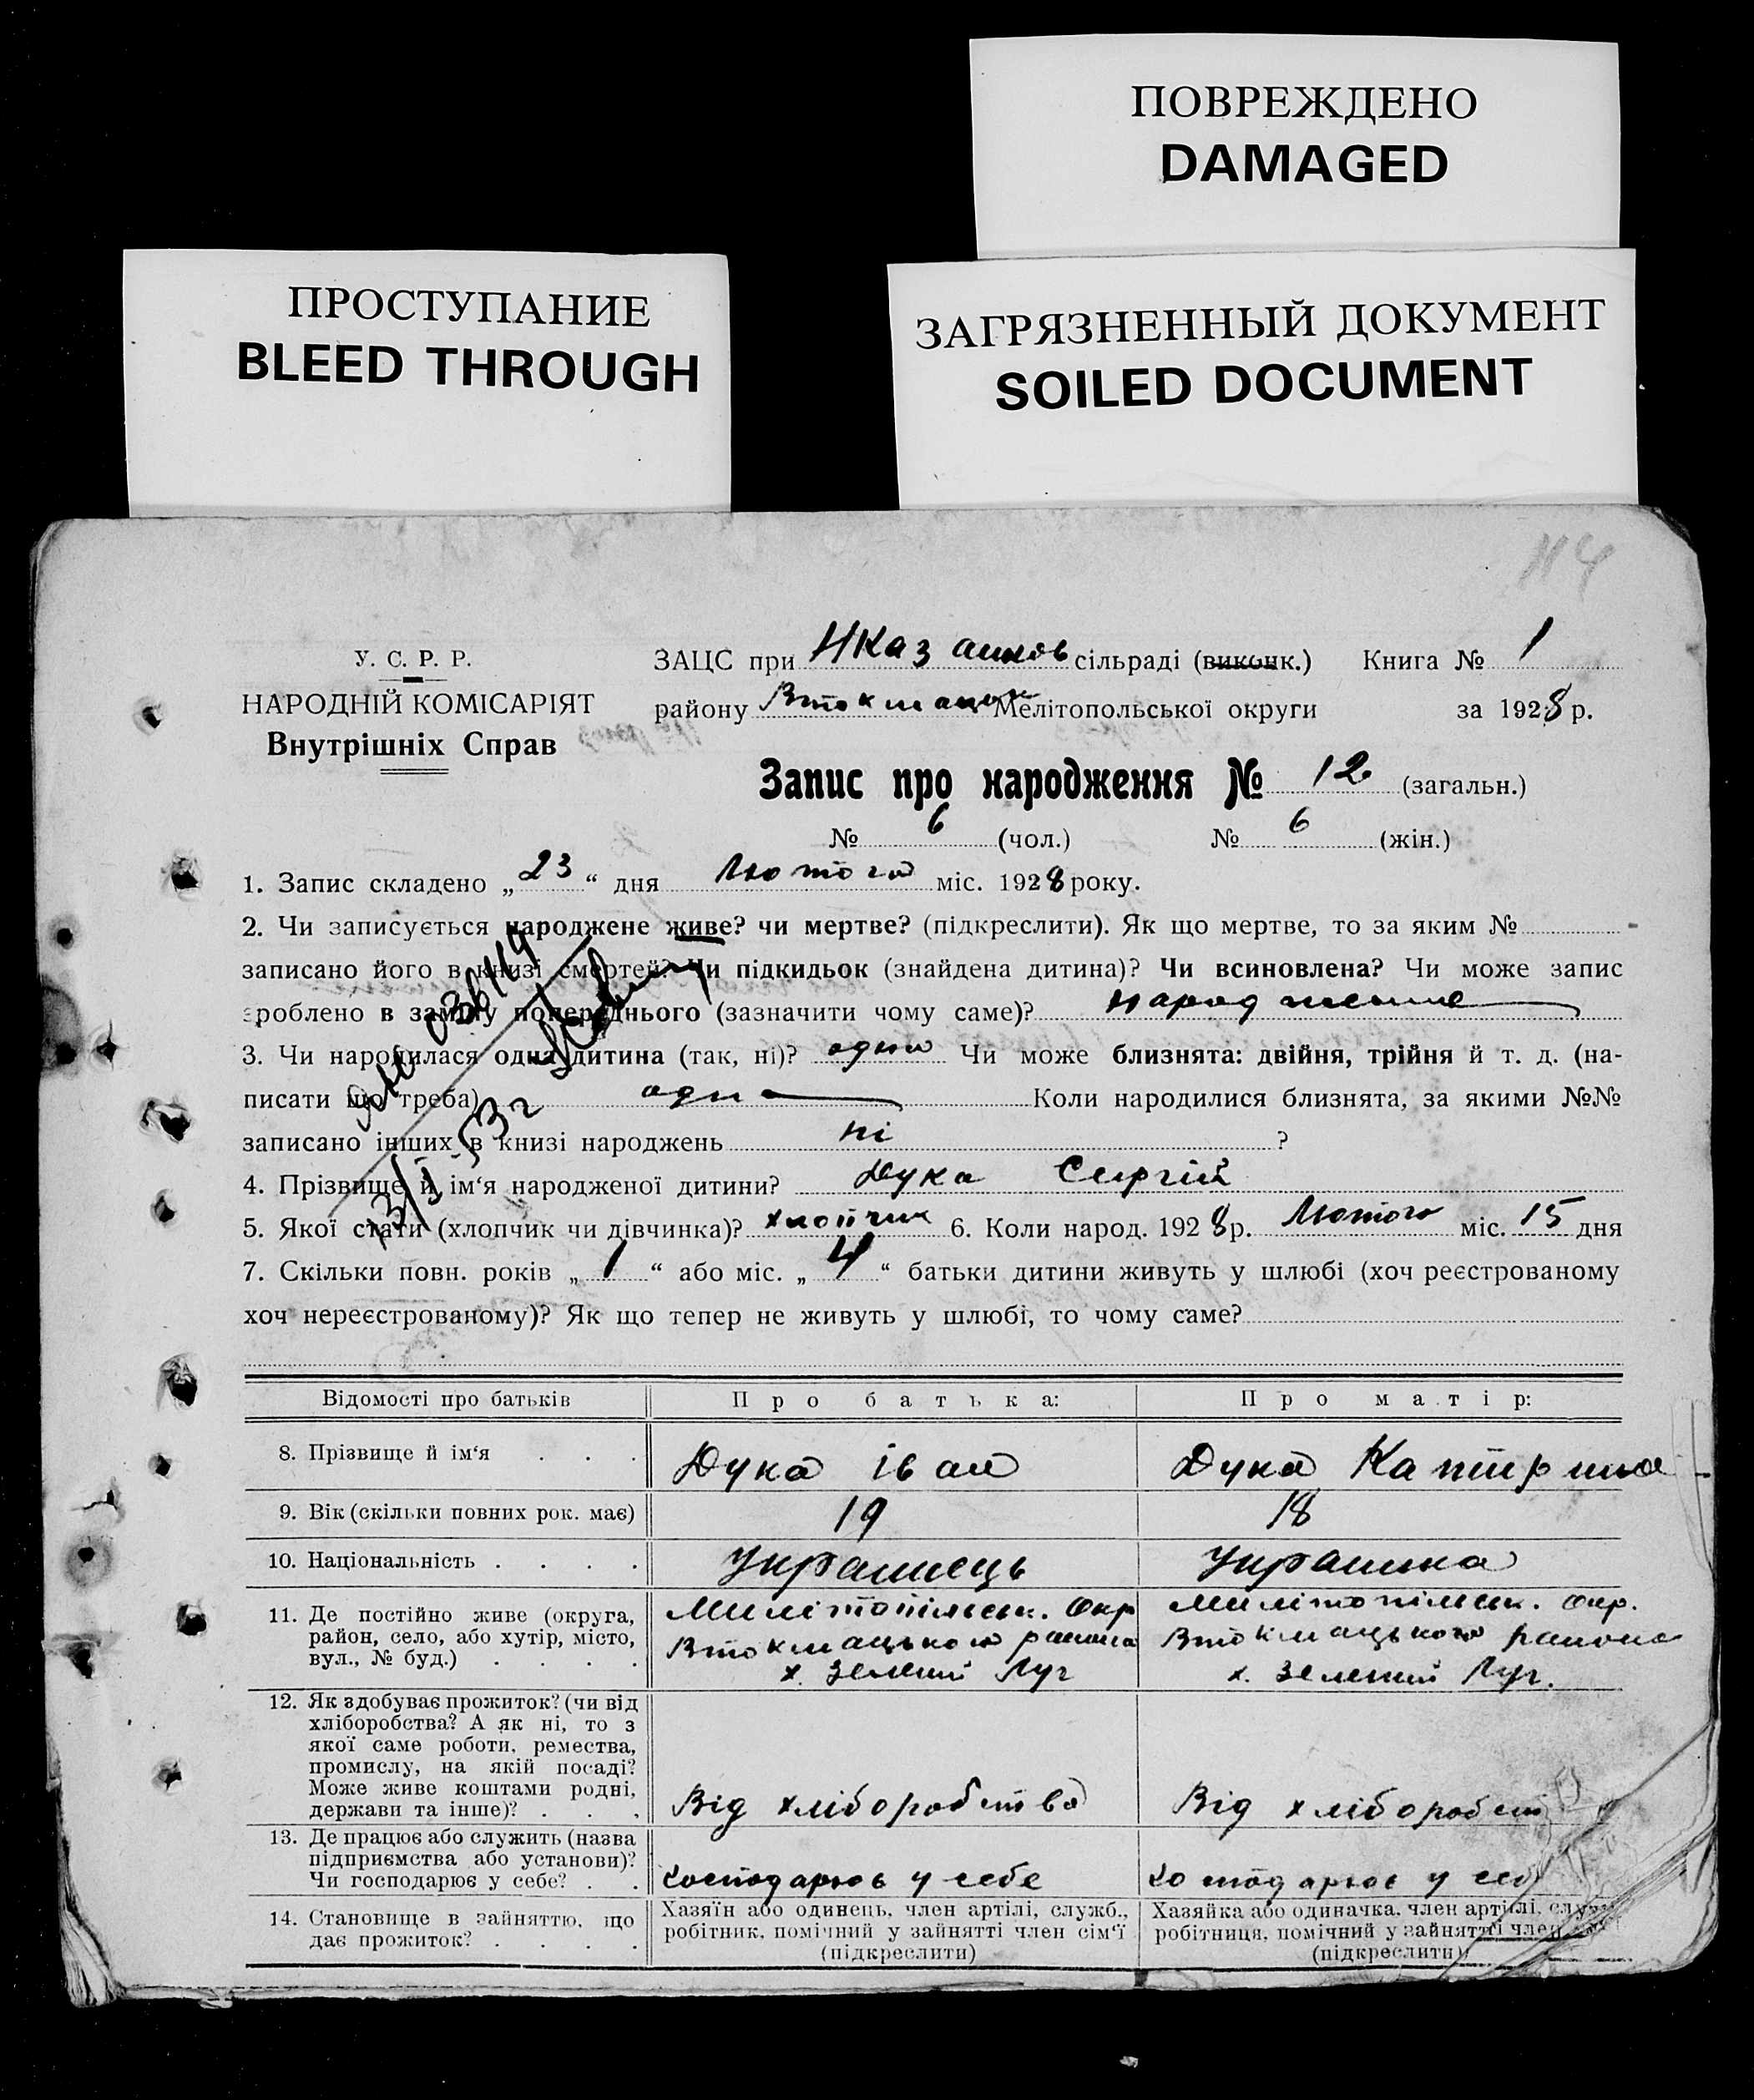 ПОВРЕЖДЕНО
DAMAGED
ПРОСТУПАНИЕ
BLEED THROUGH
ЗАГРЯЗНЕННЫЙ ДОКУМЕНТ
SOILED DOCUMENT
У. С. Р. Р.
НАРОДНІЙ КОМІСАРІЯТ
Внутрішніх Справ
ЗАЦС при сільраді (виконк.) Книга № 1
району Мелітопольської округи за 1928 р.
Запис про народження № 12 (загальн.)
№ 6 (чол.) № 6 (жін.)
1. Запис складено „23“ дня Лютого міс. 1928 року.
2. Чи записується народжене живе? чи мертве? (підкреслити). Як що мертве, то за яким №
записано його в книзі смертей? Чи підкидьок (знайдена дитина)? Чи всиновлена? Чи може запис
зроблено в заміну попереднього (зазначити чому саме)?
3. Чи народилася одна дитина (так, ні)? одна Чи може близнята: двійня, трійня й т. д. (на-
писати що треба) одна Коли народилися близнята, за якими №№
записано інших в книзі народжень ні ?
4. Прізвище й ім‘я народженої дитини? Дука Сергій
5. Якої стати (хлопчик чи дівчинка)? хлопчик 6. Коли народ. 1928 р. Лютого міс. 15 дня
7. Скільки повн. років „1“ або міс. „4“ батьки дитини живуть у шлюбі (хоч реєстрованому
хоч нереєстрованому)? Як що тепер не живуть у шлюбі, то чому саме?
Відомості про батьків Про батька: Про матір:
8. Прізвище й ім‘я . . . Дука Іван Дука Катирина
9. Вік (скільки повних рок. має) 19 18
10. Національність . . . . Украінець Украінка
11. Де постійно живе (округа,
район, село, або хутір, місто,
вул., № буд.) . . . .
Милітопільськ. Окр
Втокмацького района
х. Зелений Луг
Милітопільськ. Окр.
Втокмацького района
х. Зелений Луг.
12. Як здобуває прожиток? (чи від
хліборобства? А як ні, то з
якої саме роботи, ремества,
промислу, на якій посаді?
Може живе коштами родні,
держави та інше)? . . .
Від хліборобства
Від хліборобст
13. Де працює або служить (назва
підприємства або установи)?
Чи господарює у себе? . .
Господарює у себе
Господарює у себ
14. Становище в зайняттю, що
дає прожиток? . . . .
Хазяїн або одинець, член артілі, служб.,
робітник, помічний у зайнятті член сім‘ї
(підкреслити)
Хазяйка або одиначка, член артілі,
робітниця, помічний у зайнятті член
(підкреслити)